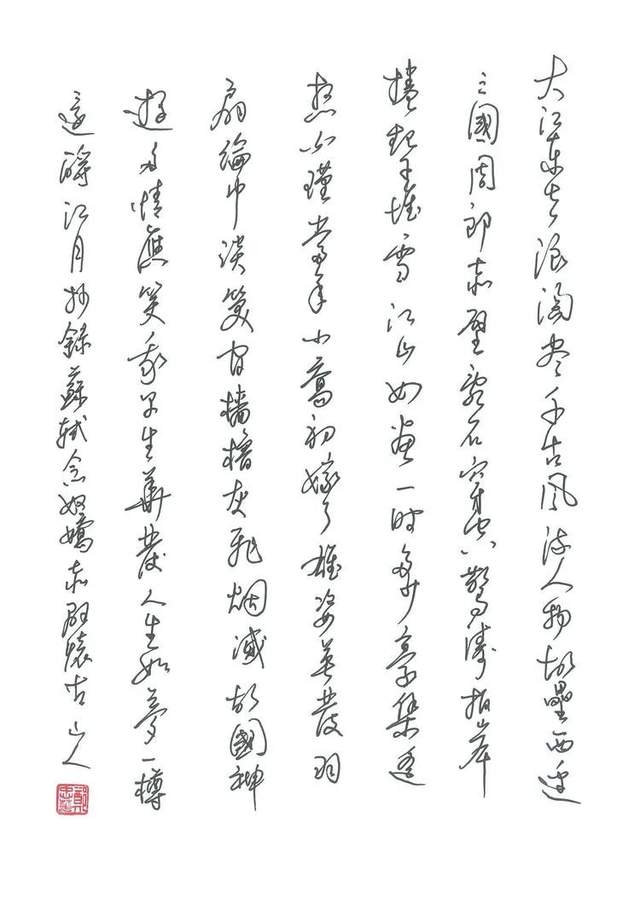 大江東去浪淘尽千古風流人物故壘西邊
三國周郎赤壁亂石穿空驚濤拍岸
捲起千堆雪江山如畫一時多少豪傑遙
想公瑾當年小喬初嫁了雄姿英發羽
扇綸巾談笑間檣櫓灰飛烟滅故國神
遊多情應笑我早生華髮人生如夢一樽
還酹江月抄錄蘇軾念奴嬌赤壁懷古山人